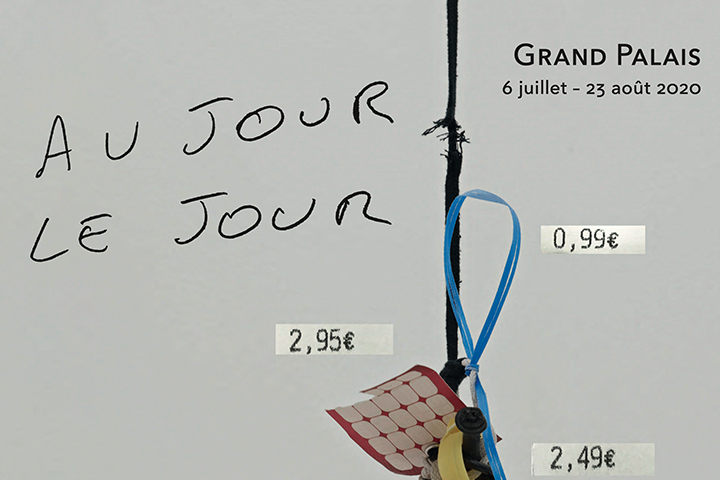 GRAND PALAIS
6 juillet – 23 août 2020
AU JOUR
LE JOUR
0,99€
2,95€
2,49€